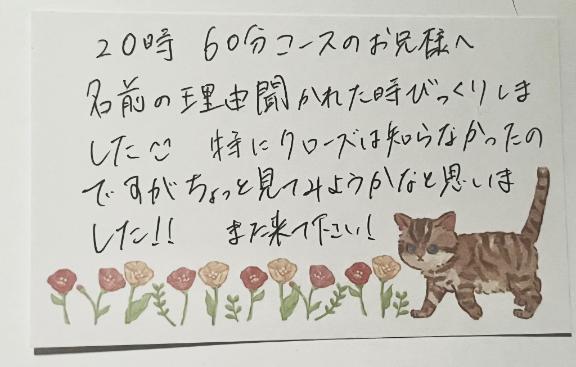 20時 60分コースのお兄様へ
名前の理由聞かれた時びっくりしま
した☺ 特にクローズは知らなかったの
ですがちょっと見てみようかなと思いま
した!! また来て下さい!